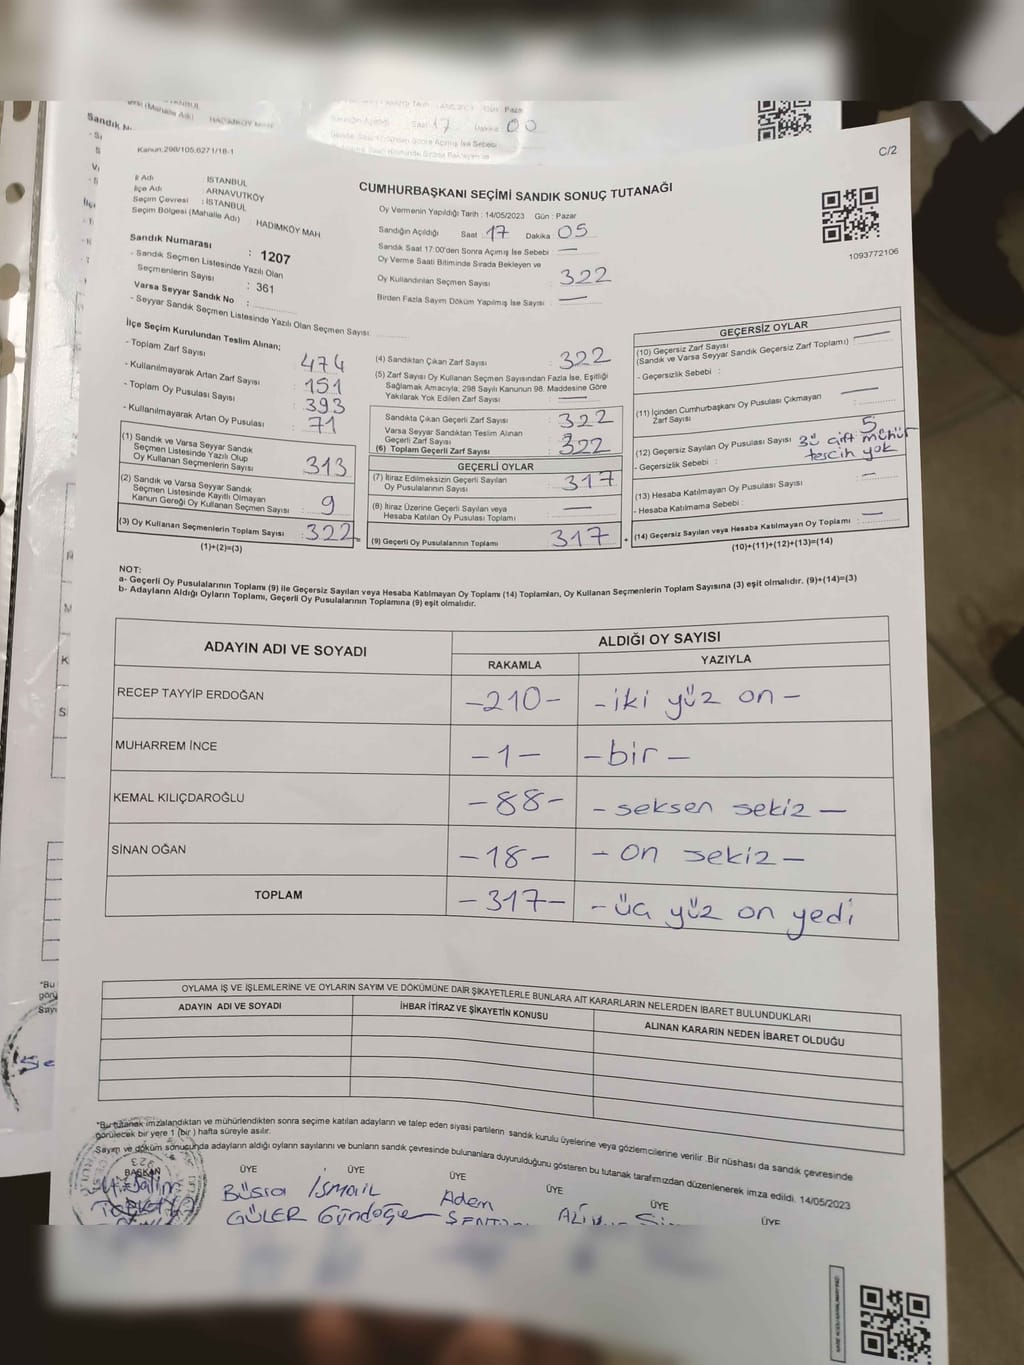 Kanun:298/105,6271/18-1
C/2
CUMHURBAŞKANI SEÇİMİ SANDIK SONUÇ TUTANAĞI
İl Adı : İSTANBUL
İlçe Adı : ARNAVUTKÖY
Seçim Çevresi : İSTANBUL
Seçim Bölgesi (Mahalle Adı) HADIMKÖY MAH
Sandık Numarası : 1207
- Sandık Seçmen Listesinde Yazılı Olan
Seçmenlerin Sayısı : 361
Varsa Seyyar Sandık No :
- Seyyar Sandık Seçmen Listesinde Yazılı Olan Seçmen Sayısı:
Oy Vermenin Yapıldığı Tarih : 14/05/2023 Gün : Pazar
Sandığın Açıldığı Saat 17 Dakika 05
Sandık Saat 17:00'den Sonra Açımış İse Sebebi —
Oy Verme Saati Bitiminde Sırada Bekleyen ve
Oy Kullandırılan Seçmen Sayısı : 322
Birden Fazla Sayım Döküm Yapılmış İse Sayısı : —
1093772106
İlçe Seçim Kurulundan Teslim Alınan;
- Toplam Zarf Sayısı : 474
- Kullanılmayarak Artan Zarf Sayısı : 151
- Toplam Oy Pusulası Sayısı : 393
- Kullanılmayarak Artan Oy Pusulası : 71
(1) Sandık ve Varsa Seyyar Sandık
Seçmen Listesinde Yazılı Olup
Oy Kullanan Seçmenlerin Sayısı : 313
(2) Sandık ve Varsa Seyyar Sandık
Seçmen Listesinde Kayıtlı Olmayan
Kanun Gereği Oy Kullanan Seçmen Sayısı : 9
(3) Oy Kullanan Seçmenlerin Toplam Sayısı : 322
(1)+(2)=(3)
=
(4) Sandıktan Çıkan Zarf Sayısı : 322
(5) Zarf Sayısı Oy Kullanan Seçmen Sayısından Fazla İse, Eşitliği
Sağlamak Amacıyla; 298 Sayılı Kanunun 98. Maddesine Göre
Yakılarak Yok Edilen Zarf Sayısı : —
Sandıkta Çıkan Geçerli Zarf Sayısı : 322
Varsa Seyyar Sandıktan Teslim Alınan
Geçerli Zarf Sayısı
(6) Toplam Geçerli Zarf Sayısı : 322
GEÇERLİ OYLAR
(7) İtiraz Edilmeksizin Geçerli Sayılan
Oy Pusulalarının Sayısı : 317
(8) İtiraz Üzerine Geçerli Sayılan veya
Hesaba Katılan Oy Pusulası Toplamı : —
(9) Geçerli Oy Pusulalarının Toplamı : 317
+
GEÇERSİZ OYLAR
(10) Geçersiz Zarf Sayısı
(Sandık ve Varsa Seyyar Sandık Geçersiz Zarf Toplamı) : —
- Geçersizlik Sebebi :
(11) İçinden Cumhurbaşkanı Oy Pusulası Çıkmayan
Zarf Sayısı : —
(12) Geçersiz Sayılan Oy Pusulası Sayısı : 5
- Geçersizlik Sebebi : 3ü çift mühür
tercih yok
(13) Hesaba Katılmayan Oy Pusulası Sayısı : —
- Hesaba Katılmama Sebebi :
(14) Geçersiz Sayılan veya Hesaba Katılmayan Oy Toplamı : —
(10)+(11)+(12)+(13)=(14)
NOT:
a- Geçerli Oy Pusulalarının Toplamı (9) ile Geçersiz Sayılan veya Hesaba Katılmayan Oy Toplamı (14) Toplamları, Oy Kullanan Seçmenlerin Toplam Sayısına (3) eşit olmalıdır. (9)+(14)=(3)
b- Adayların Aldığı Oyların Toplamı, Geçerli Oy Pusulalarının Toplamına (9) eşit olmalıdır.
ADAYIN ADI VE SOYADI ALDIĞI OY SAYISI
RAKAMLA YAZIYLA
RECEP TAYYİP ERDOĞAN -210- - iki yüz on -
MUHARREM İNCE -1- - bir -
KEMAL KILIÇDAROĞLU -88- - seksen sekiz -
SİNAN OĞAN -18- - on sekiz -
TOPLAM -317- - üç yüz on yedi
OYLAMA İŞ VE İŞLEMLERİNE VE OYLARIN SAYIM VE DÖKÜMÜNE DAİR ŞİKAYETLERLE BUNLARA AİT KARARLARIN NELERDEN İBARET BULUNDUKLARI
ADAYIN ADI VE SOYADI İHBAR İTİRAZ VE ŞİKAYETİN KONUSU ALINAN KARARIN NEDEN İBARET OLDUĞU
*Bu tutanak imzalandıktan ve mühürlendikten sonra seçime katılan adayların ve talep eden siyasi partilerin sandık kurulu üyelerine veya gözlemcilerine verilir .Bir nüshası da sandık çevresinde
görülecek bir yere 1 (bir ) hafta süreyle asılır.
Sayım ve döküm sonucunda adayların aldığı oyların sayılarını ve bunların sandık çevresinde bulunanlara duyurulduğunu gösteren bu tutanak tarafımızdan düzenlenerek imza edildi. 14/05/2023
BAŞKAN ÜYE ÜYE ÜYE ÜYE ÜYE ÜYE
Büşra GÜLER
İsmail
Adem